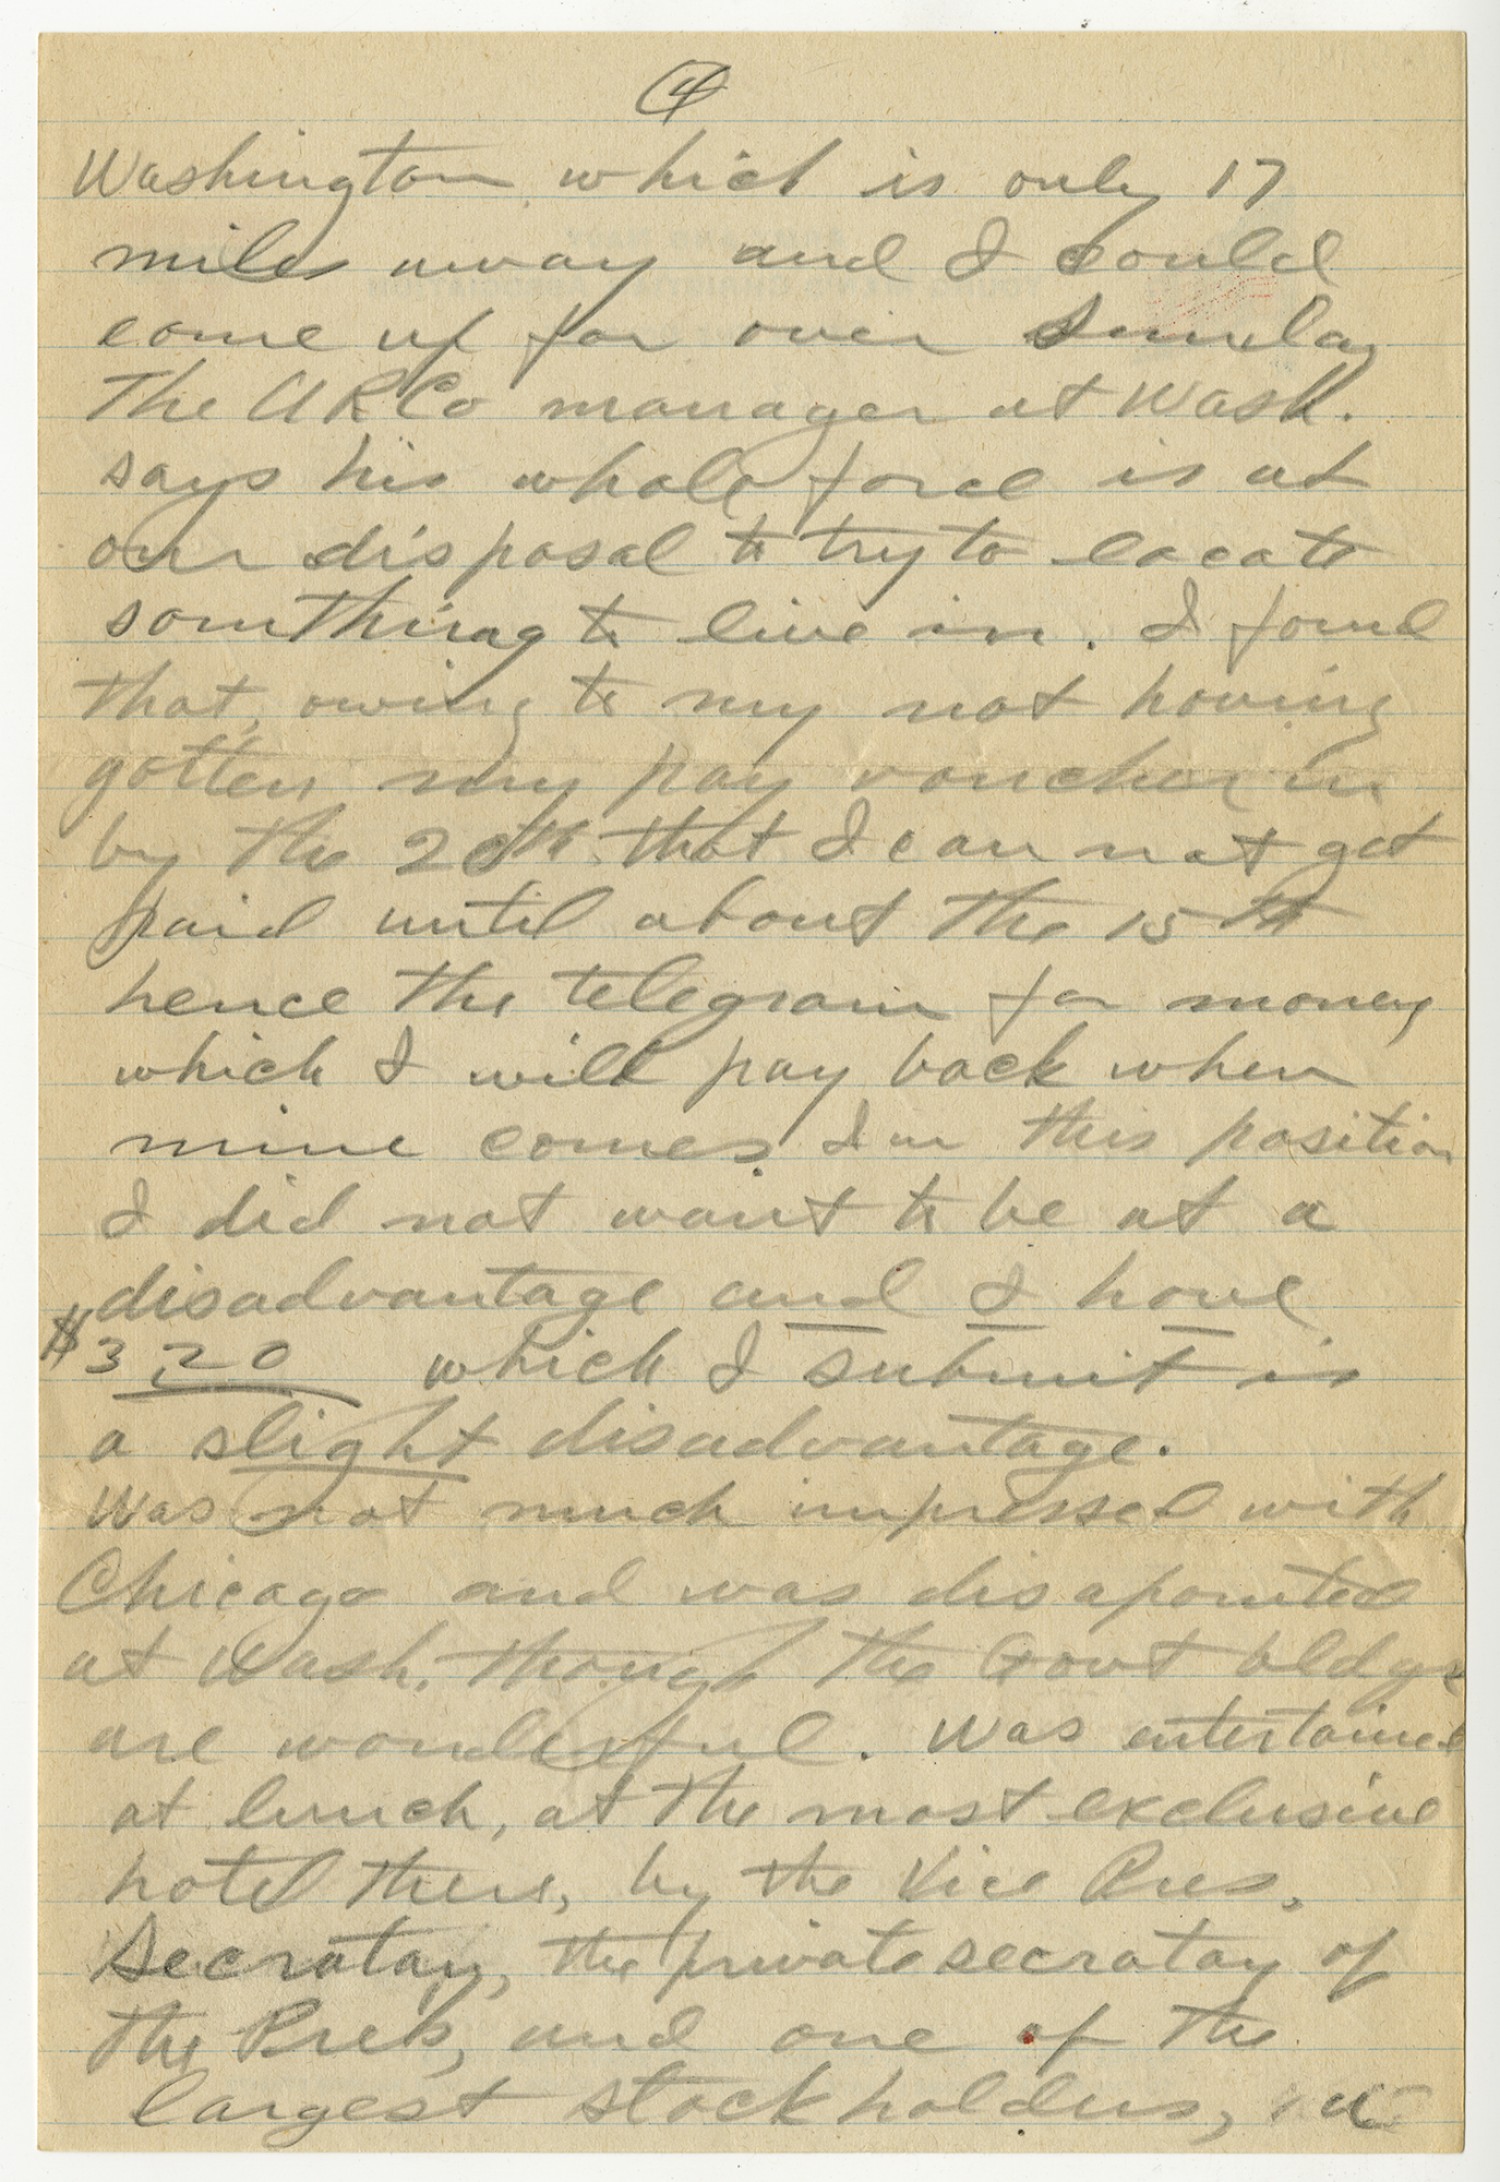 4
Washington which is only 17
miles away and I could
come up for over Sunday
The ARCo manager at Wash.
says his whole force is at
our disposal to try to locate
something to live in. I found
that, owing to my not having
gotten my pay voucher in
by the 20th that I can not get
paid until about the 15th
hence the telegram for money
which I will pay back when
mine comes. In this position
I did not want to be at a
disadvantage and I have
$320 which I submit is
a slight disadvantage.
Was not much impressed with
Chicago and was disapointed
at Wash. though the Govt bldgs
are wonderful. Was entertained
at lunch, at the most exclusive
hotel there, by the Vice Pres.
Secratary, the private secratary of
the Pres, and one of the
largest stockholders, in